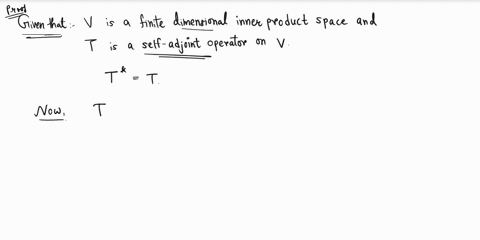 Proof
Given that:- V is a finite dimensional inner product space and
T is a self-adjoint operator on V.
T* = T.
Now, T